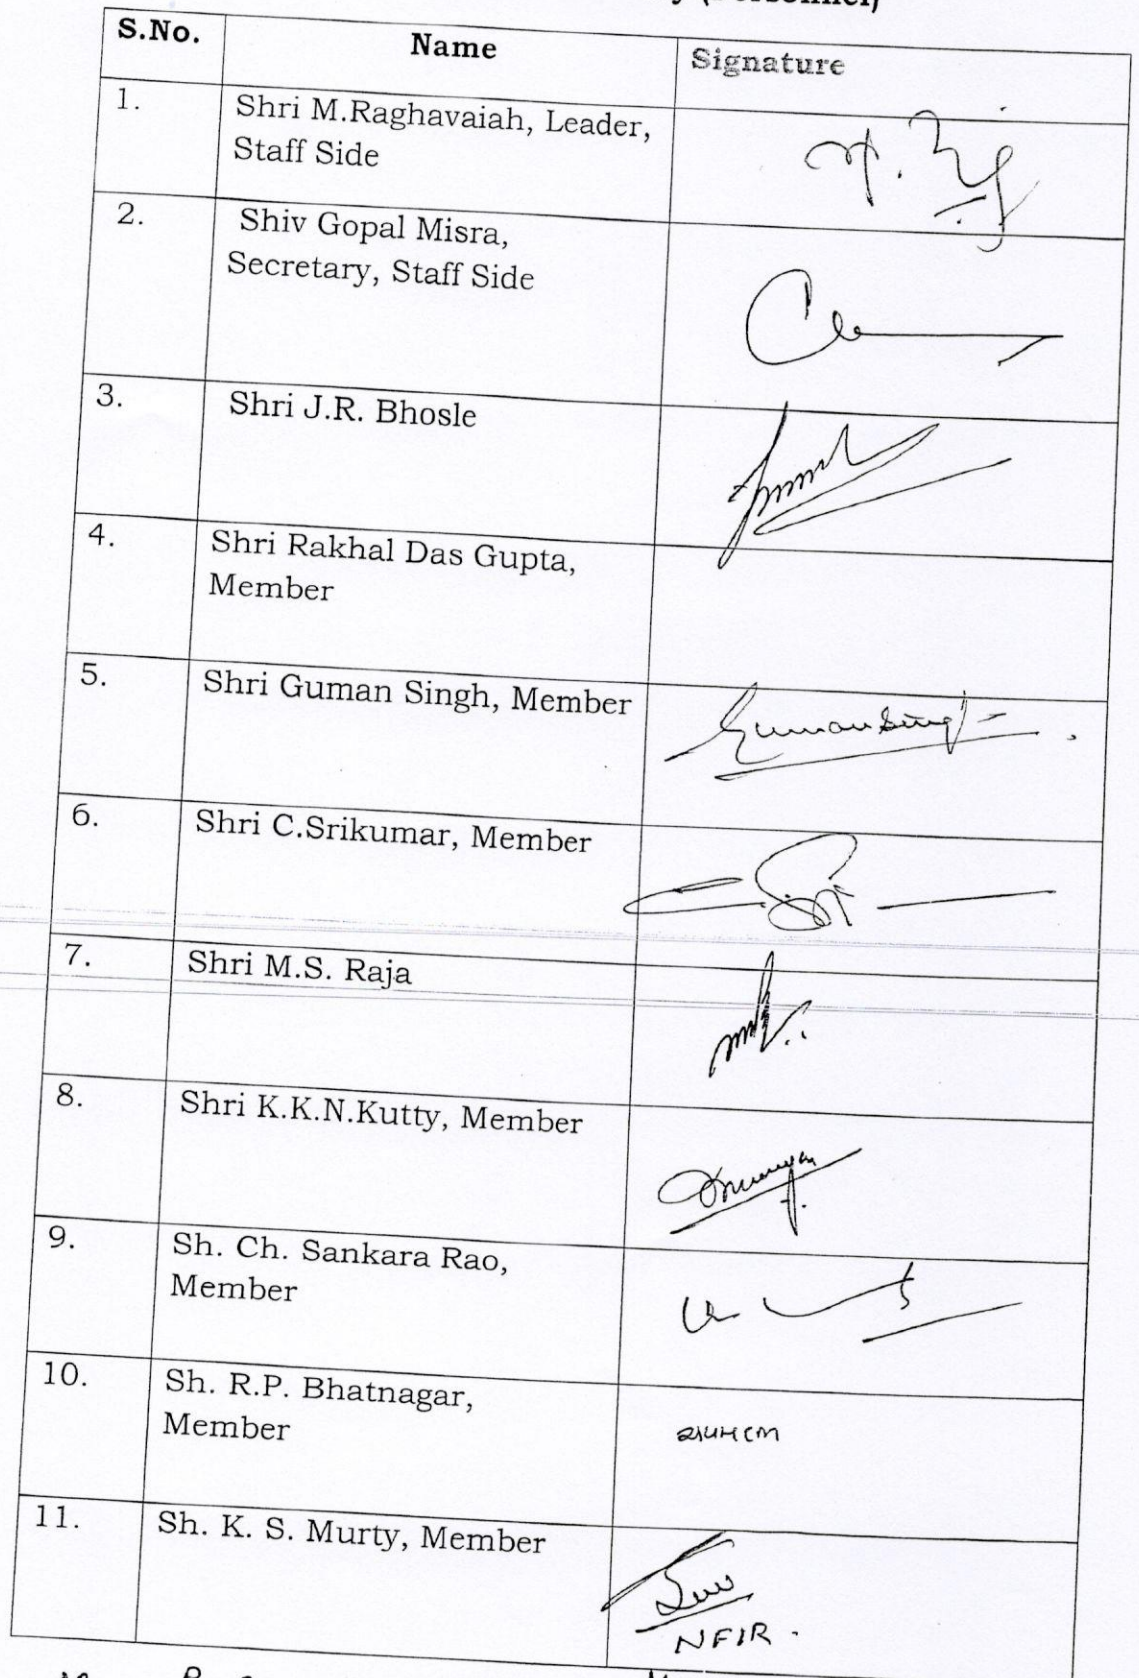 (Personnel)
S.No. Name Signature
1. Shri M.Raghavaiah, Leader,
Staff Side
2. Shiv Gopal Misra,
Secretary, Staff Side
3. Shri J.R. Bhosle
4. Shri Rakhal Das Gupta,
Member
5. Shri Guman Singh, Member
Guman Singh
6. Shri C.Srikumar, Member
7. Shri M.S. Raja
8. Shri K.K.N.Kutty, Member
9. Sh. Ch. Sankara Rao,
Member
10. Sh. R.P. Bhatnagar,
Member
11. Sh. K. S. Murty, Member
NFIR.